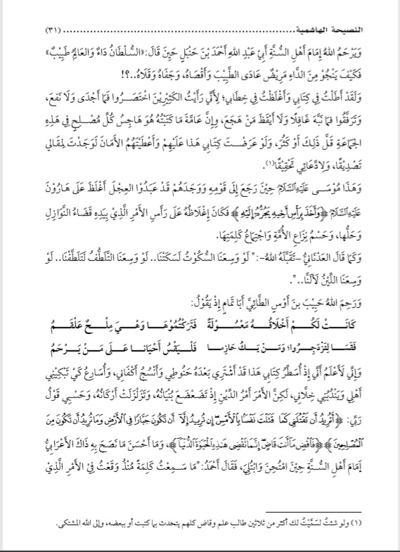 النصيحة الهاشمية (٣١)
وَيَرْحَمُ اللهُ إِمَامَ أَهْلِ السُّنَّةِ أَبِي عَبْدِ اللهِ أَحْمَدَ بْنَ حَنْبَلٍ حِينَ قَالَ: «السُّلْطَانُ دَاءٌ وَالعَالِمُ طَبِيبٌ»
فَكَيْفَ يَنْجُوْ مِنَ الدَّاءِ مَرِيْضٌ عَادَى الطَّبِيْبَ وَأَقْصَاهُ، وَجَفَاهُ وَقَلَاهُ..؟!
وَلَقَدْ أَطَلْتُ فِي كِتَابِي وَأَغْلَظْتُ فِي خِطَابِي؛ لِأَنِّي رَأَيْتُ الكَثِيْرِيْنَ اخْتَصَرُوا فَمَا أَجْدَى وَلَا نَفَعَ،
وَتَرَفَّقُوا فَمَا نَبَّهَ غَافِلًا وَلَا أَيْقَظَ مَنْ هَجَعَ، وإِنَّ عَامَّةَ مَا كَتَبْتُهُ هُوَ هَاجِسُ كُلِّ مُصْلِحٍ فِي هَذِهِ
الجَمَاعَةِ قَلَّ ذَلِكَ أَوْ كَثُرَ، وَلَوْ عَرَضْتَ كِتَابِي هَذَا عَلَيْهِمْ وَأَعْطَيْتَهُمُ الأَمَانَ لَوَجَدْتَ لِمَقَالِي
تَصْدِيْقًا، وَلِادِّعَائِي تَحْقِيْقًا(١).
وَهَذَا مُوْسَى عَلَيْهِ السَّلَامُ حِيْنَ رَجَعَ إِلَى قَوْمِهِ وَوَجَدَهُمْ قَدْ عَبَدُوْا العِجْلَ أَغْلَظَ عَلَى هَارُوْنَ
عَلَيْهِ السَّلَامُ ﴿وَأَخَذَ بِرَأْسِ أَخِيهِ يَجُرُّهُ إِلَيْهِ﴾ فَكَانَ إِغْلَاظُهُ عَلَى رَأْسِ الأَمْرِ الَّذِيْ بِيَدِهِ قَضَاءُ النَّوَازِلِ
وَحَلُّهَا، وَحَسْمُ نِزَاعِ الأُمَّةِ وَاجْتِمَاعُ كَلِمَتِهَا.
وَكَمَا قَالَ العَدْنَانِيُّ -تَقَبَّلَهُ اللهُ-: "لَوْ وَسِعَنَا السُّكُوْتُ لَسَكَتْنَا.. لَوْ وَسِعَنَا التَّلَطُّفُ لَتَلَطَّفْنَا.. لَوْ
وَسِعَنَا اللِّيْنُ لَأَلَنَّا..".
وَرَحِمَ اللهُ حَبِيْبَ بْنَ أَوْسٍ الطَّائِيَّ أَبَا تَمَّامٍ إِذْ يَقُوْلُ:
كَانَتْ لَكُمْ أَخْلَاقُهُ مَعْسُوْلَةً فَتَرَكْتُمُوْهَا وَهْيَ مِلْحٌ عَلْقَمُ
فَقَسَا لِتَزْدَجِرُوا وَمَنْ يَكُ حَازِمًا فَلْيَقْسُ أَحْيَانًا عَلَى مَنْ يَرْحَمُ
وَإِنِّي لَأَعْلَمُ أَنِّي إِذْ أُسَطِّرُ كِتَابِي هَذَا قَدْ أَشْتَرِي بَعْدَهُ حَنُوْطِي وَأَنْسِجُ أَكْفَانِي، وَأُسَارِعُ كَيْ تَبْكِيَنِي
أَهْلِي وَيَنْدُبَنِي خِلَّانِي، لَكِنَّ الأَمْرَ أَمْرُ الدِّيْنِ إِذْ تَضَعْضَعَ بُنْيَانُهُ، وَتَزَلْزَلَتْ أَرْكَانُهُ، وَحَسْبِي قَوْلُ
رَبِّي: ﴿أَتُرِيدُ أَن تَقْتُلَنِي كَمَا قَتَلْتَ نَفْسًا بِالْأَمْسِ إِن تُرِيدُ إِلَّا أَن تَكُونَ جَبَّارًا فِي الْأَرْضِ وَمَا تُرِيدُ أَن تَكُونَ مِنَ
الْمُصْلِحِينَ﴾ ﴿فَاقْضِ مَا أَنتَ قَاضٍ إِنَّمَا تَقْضِي هَذِهِ الْحَيَاةَ الدُّنْيَا﴾، وَمَا أَحْسَنَ مَا نَصَحَ بِهِ ذَاكَ الأَعْرَابِيُّ
إِمَامَ أَهْلِ السُّنَّةِ حِيْنَ امْتُحِنَ وَابْتُلِيَ، فَقَالَ أَحْمَدُ: "مَا سَمِعْتُ كَلِمَةً مُنْذُ وَقَعْتُ فِي الأَمْرِ الَّذِيْ
(١) ولو شئتُ لسمَّيْتُ لك أكثر من ثلاثين طالب علم وقاضٍ كلهم يتحدث بما كتبت أو ببعضه، وإلى الله المشتكى.